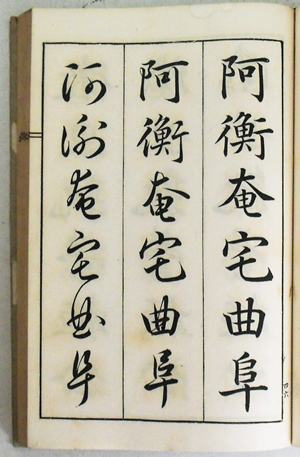 阿衡奄宅曲阜
阿衡奄宅曲阜
阿衡奄宅曲阜
四六